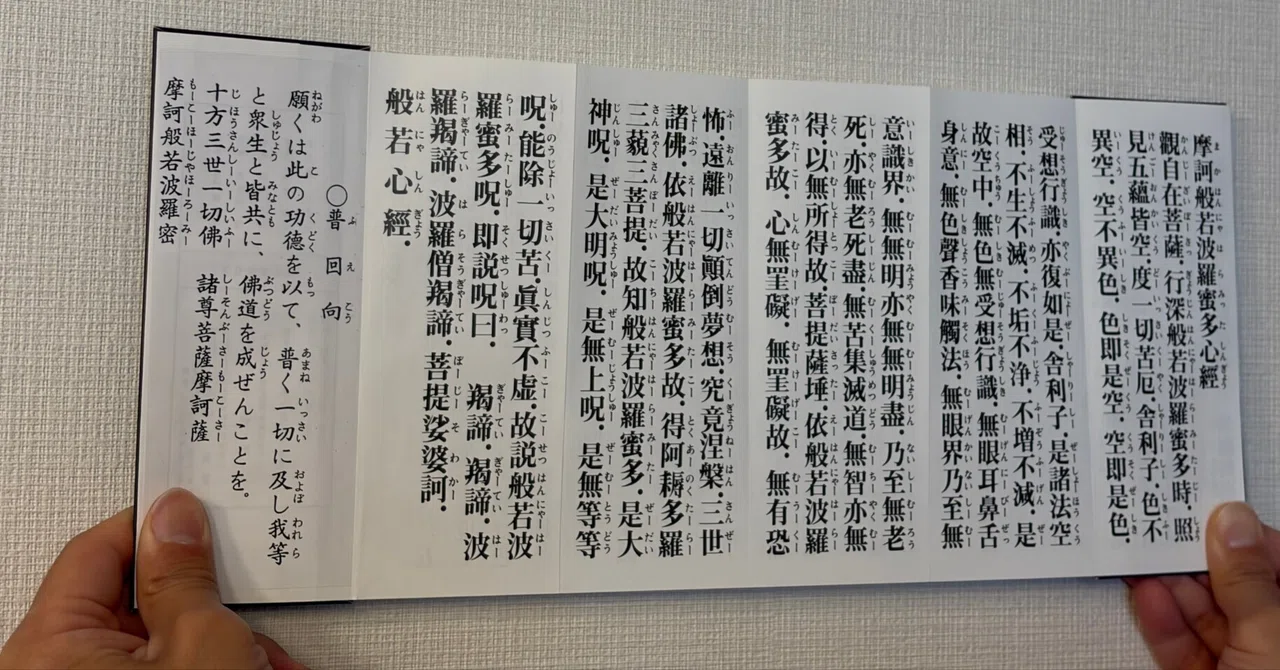 摩訶般若波羅蜜多心經
觀自在菩薩．行深般若波羅蜜多時．照
見五蘊皆空．度一切苦厄．舍利子．色不
異空．空不異色．色即是空．空即是色．
受想行識．亦復如是．舍利子．是諸法空
相．不生不滅．不垢不浄．不增不減．是
故空中．無色無受想行識．無眼耳鼻舌
身意．無色聲香味觸法．無眼界乃至無
意識界．無無明亦無無明盡．乃至無老
死．亦無老死盡．無苦集滅道．無智亦無
得．以無所得故．菩提薩埵．依般若波羅
蜜多故．心無罣礙．無罣礙故．無有恐
怖．遠離一切顚倒夢想．究竟涅槃．三世
諸佛．依般若波羅蜜多故．得阿耨多羅
三藐三菩提．故知般若波羅蜜多．是大
神呪．是大明呪．是無上呪．是無等等
呪．能除一切苦．眞實不虚．故説般若波
羅蜜多呪．即説呪曰．羯諦．羯諦．波
羅羯諦．波羅僧羯諦．菩提娑婆訶．
般若心經．
〇普回向
願くは此の功德を以て、普く一切に及し我等
と衆生と皆共に、佛道を成ぜんことを。
十方三世一切佛 諸尊菩薩摩訶薩
摩訶般若波羅密